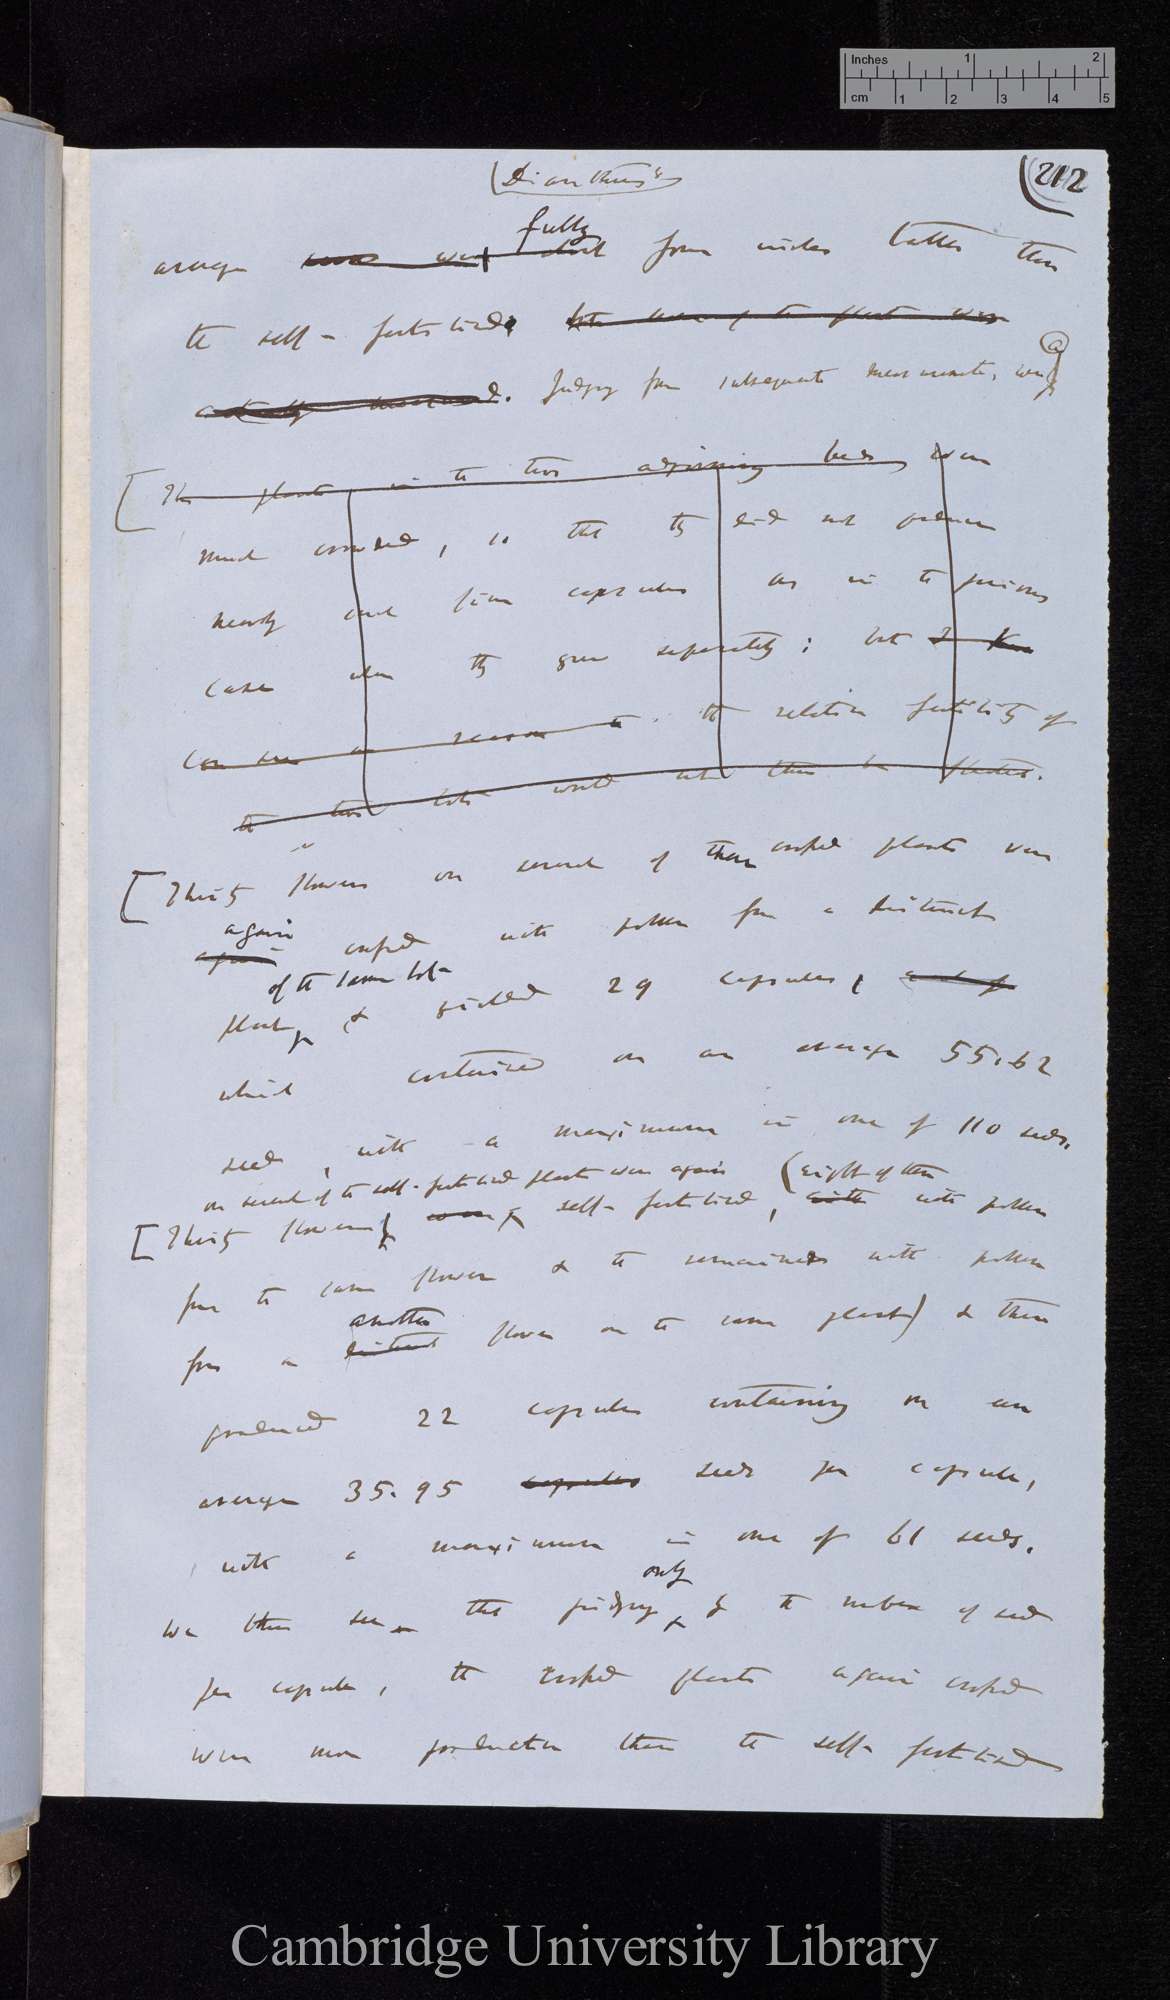 Inches 1 2
cm 1 2 3 4 5
(Dianthus)
(212
fully
average were about four inches taller than
the self-fertilised, but none of the plants were
actually measured. Judging from subsequent measurements, was
a
[The plants in the two adjoining beds were
much crowded, so that they did not produce
nearly such fine capsules as in the previous
case when they grew separately; but I
can see no reason the relative fertility of
the two lots would thus be affected.
[Thirty flowers on several of these crossed plants were
again
again crossed with pollen from a distinct
of the same lot
plant, & yielded 29 capsules,
which contained on an average 55.62
seed, with a maximum in one of 110 seeds.
on several of the self-fertilised plants were again (eight of them
[Thirty flowers were self-fertilised, with with pollen
from the same flower & the remainder with pollen
another
from a distinct flower on the same plant) & these
produced 22 capsules containing on an
average 35.95 capsules seeds per capsule,
with a maximum in one of 61 seeds.
only
We thus see that judging by the number of seed
per capsule, the crossed plants again crossed
were more productive than the self-fertilised
Cambridge University Library